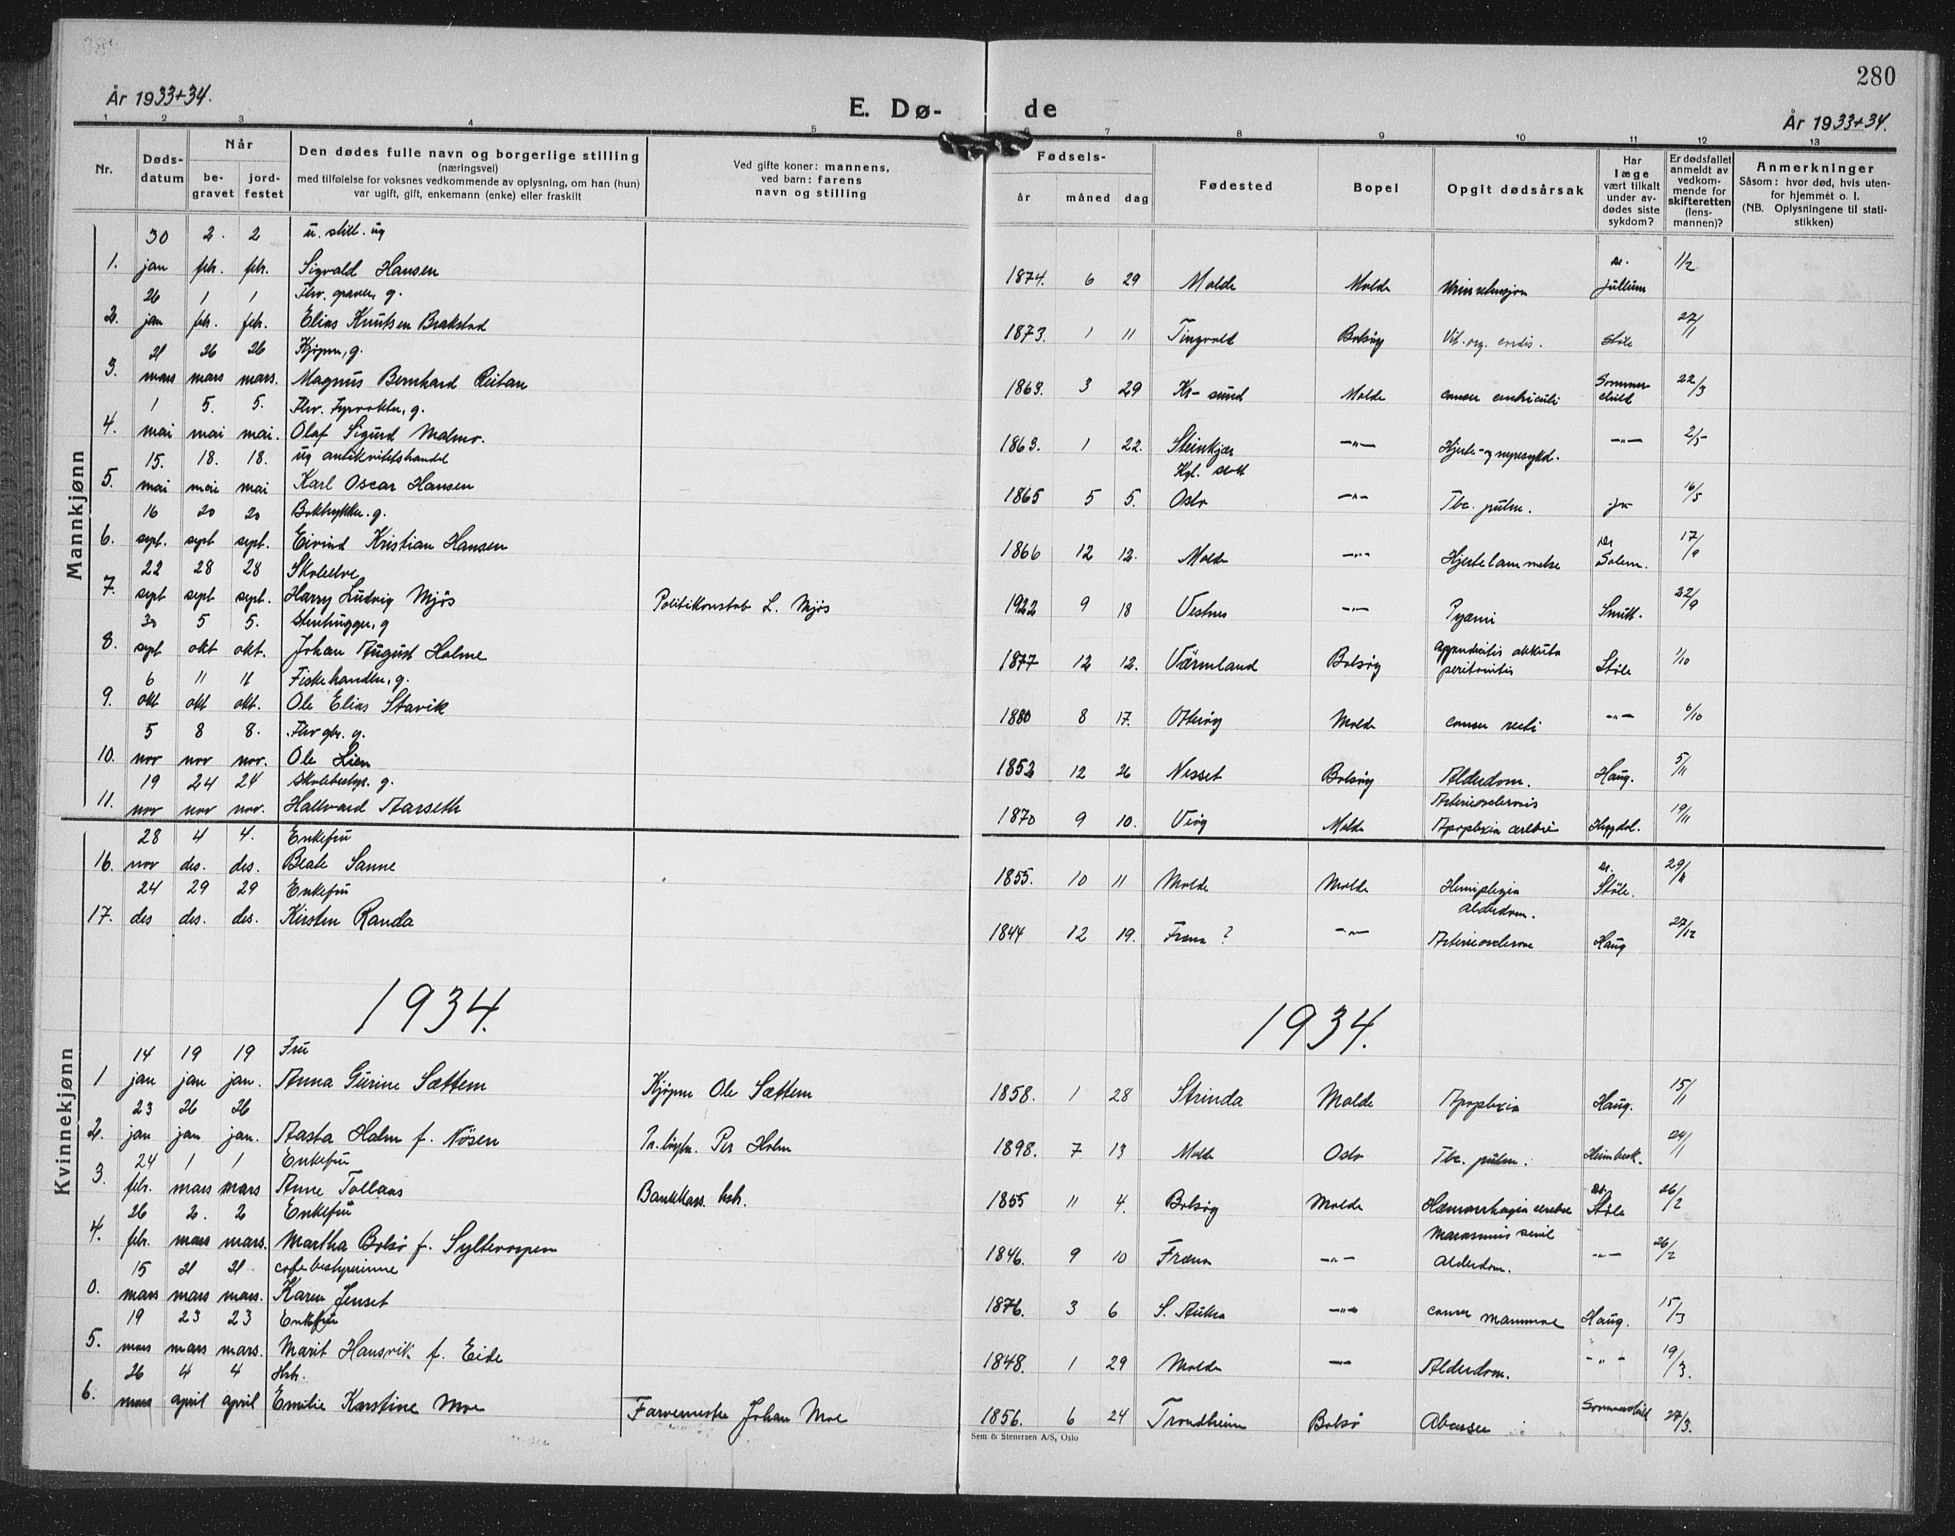 280
År 1933+34.
E. Dø- de
År 1933+34.
1 2 3 4 5 6 7 8 9 10 11 12 13
Nr.
Døds-
datum
Når
be-
gravet
jord-
festet
Den dødes fulle navn og borgerlige stilling
(næringsvei)
med tilføielse for voksnes vedkommende av oplysning, om han (hun)
var ugift, gift, enkemann (enke) eller fraskilt
Ved gifte koner: mannens,
ved barn: farens
navn og stilling
Fødsels-
år måned dag
Fødested
Bopel
Opgit dødsårsak
Har
læge
vært tilkalt
under av-
dødes siste
sykdom?
Er dødsfallet
anmeldt av
vedkom-
mende for
skifteretten
(lens-
mannen)?
Anmerkninger
Såsom: hvor død, hvis uten-
for hjemmet o. l.
(NB. Oplysningene til stati-
stikken)
Mannkjønn
30 2. 2 u. still. ug
1. jan feb. feb. Sigvald Hansen 1874. 6 29 Molde Molde Dr. Jullum 1/2
26 1 1 g.
2. jan feb. feb. Elias Knutsen Brakstad 1873. 1 11 Tingvold Bolsøy Vit. org. cordis. Støle 27/1
21 26 26 Kjøpm, g.
3. mars mars mars. Magnus Bernhard Reitan 1863. 3 29 Kr-sund Molde cancer ventriculi Sommerschild 22/3
1 5. 5. Fhv. Fyrvokter, g.
4. mai mai mai. Olaf Sigurd Malmo. 1863. 1 22. Steinkjær —"— Hjerte- og nyresykd. —"— 2/5
15. 18. 18. ug antikvitetshandel
5. mai mai mai Karl Oscar Hansen 1865 5 5. Kgl. slott Oslo —"— Tbc. pulm. ja 16/5
16 20 20 Boktrykker. g.
6. sept. sept sept. Eivind Kristian Hansen 1866 12 12. Molde —"— Hjertelammelse Dr Solem. 17/9
22 28 28 Skoleelev
7. sept sept sept. Harry Ludvig Mjøs Politikonstab L. Mjøs 1922 9 18 Vestnes —"— Pyæmi Smitt. 22/9
30 5 5. Stenhugger, g
8. sept okt okt. Johan August Holme 1877 12 12. Värmland Bolsøy appendicitis akkuta peritonitis Støle 1/10
6 11 11 Fiskehandler, g.
9. okt okt okt. Ole Elias Stavik 1880 8 17. Otterøy Molde cancer recti —"— 6/10
5 8 8. Fhv gbr. g.
10. nov nov nov. Ole Lien 1852 12 26 Nesset Bolsøy Alderdom. Haug. 5/11
19 24 24 Skolebestyr. g.
11. nov nov nov. Hallvard Aarseth 1870 9 10. Veøy Molde Arteriosclerosis Apoplexia cerebri 19/11
28 4 4. Enkefru
16. nov des. des. Beate Sanne 1855. 10 11 Molde Molde Hemiplegia Dr. Støle. 29/11
24 29 29 Enkefru
17. des des. des. Kirsten Randa 1844 12 19. Fræna ? —"— Alderdom. Haug 27/12
1934. 1934.
Kvinnekjønn
14 19 19 Fru
1 jan jan jan. Anna Gurine Sættem Kjøpm Ole Sættem 1858. 1 28 Strinda Molde Apoplexia Haug. 15/1
23 26 26
2. jan jan jan. Aasta Holm f. Nøsen Per Holm 1898. 7 13 Molde Oslo Tbc. pulm. Heimbeck. 24/1
24 1 1 Enkefru
3. feb. mars mars Anne Tollaas Bankkass. 1855 11 4. Bolsøy Molde Hæmorrhagia cerebri Dr. Støle 26/2
26 2. 2 Enkefru
4. feb. mars mars. Martha Bolsø f. 1846. 9 10 Fræna —"— Marasmus senil Alderdom. —"— 26/2
15 21 21 cafebestyrerinne
0. mars mars mars. Karen Jenset 1876. 3 6 S. Aukra —"— cancer mammae Haug. 15/3
19 23 23 Enkefru
5. mars mars mars. Marit Hausvik f. Eide 1848. 1 29 Molde —"— Alderdom. -"- 19/3.
26 4 4 Hsh.
6. mars april april Emilie Karstine Moe Farvermester Johan Moe 1856. 6 24 Trondheim Bolsø Sommerschild 27/3.
Sem & Stenersen A/S, Oslo